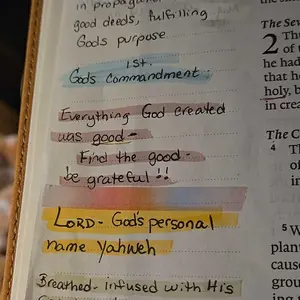 in propagating
good deeds, fulfilling
Gods purpose
1st.
Gods commandment:
Everything God created
was good-
Find the good-
be grateful!!
LORD- God's personal
name Yahweh
Breathed- infused with His
The Sev
2 Thu
of t
he had
that h
holy, b
in
The C
4 Th
of
in
5 W
plan
caus
grou
ing